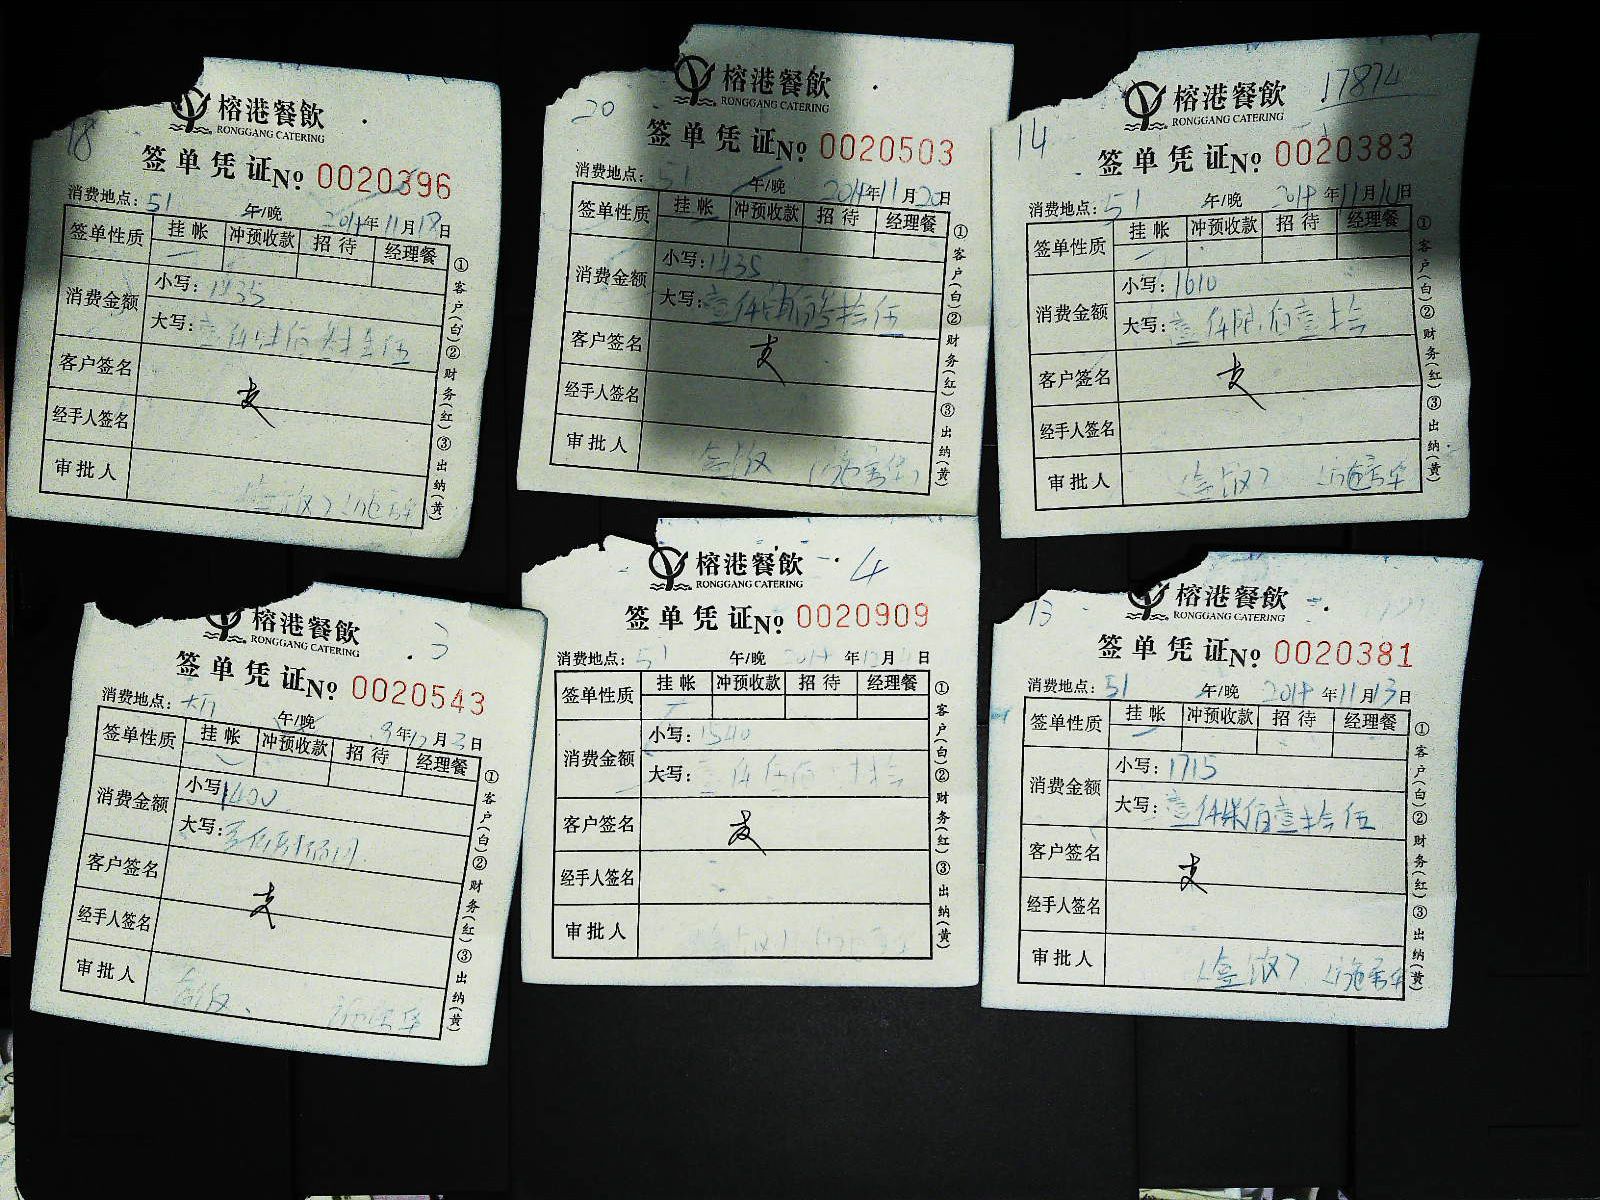 18
榕港餐飲
RONGGANG CATERING
签单凭证 No 0020396
消费地点: 51 午/晚 2014年11月18日
签单性质 挂帐 冲预收款 招待 经理餐
消费金额 小写: 1435
大写:
客户签名 支
经手人签名
审批人
①客户(白)②财务(红)③出纳(黄)
20
榕港餐飲
RONGGANG CATERING
签单凭证 No 0020503
消费地点: 51 午/晚 2014年11月20日
签单性质 挂帐 冲预收款 招待 经理餐
消费金额 小写: 1435
大写: 壹仟肆佰叁拾伍
客户签名 支
经手人签名
审批人
①客户(白)②财务(红)③出纳(黄)
14
17874
榕港餐飲
RONGGANG CATERING
签单凭证 No 0020383
消费地点: 51 午/晚 2014年11月日
签单性质 挂帐 冲预收款 招待 经理餐
消费金额 小写: 1610
大写: 壹仟陆佰壹拾
客户签名 支
经手人签名
审批人
①客户(白)②财务(红)③出纳(黄)
榕港餐飲
RONGGANG CATERING
3
签单凭证 No 0020543
消费地点: 大厅 午/晚 年12月3日
签单性质 挂帐 冲预收款 招待 经理餐
消费金额 小写: 1400
大写:
客户签名 支
经手人签名
审批人
①客户(白)②财务(红)③出纳(黄)
榕港餐飲
RONGGANG CATERING
4
签单凭证 No 0020909
消费地点: 51 午/晚 2014年12月日
签单性质 挂帐 冲预收款 招待 经理餐
消费金额 小写: 1540
大写:
客户签名 支
经手人签名
审批人
①客户(白)②财务(红)③出纳(黄)
13
榕港餐飲
RONGGANG CATERING
签单凭证 No 0020381
消费地点: 51 午/晚 2014年11月13日
签单性质 挂帐 冲预收款 招待 经理餐
消费金额 小写: 1715
大写: 壹仟柒佰壹拾伍
客户签名 支
经手人签名
审批人
①客户(白)②财务(红)③出纳(黄)